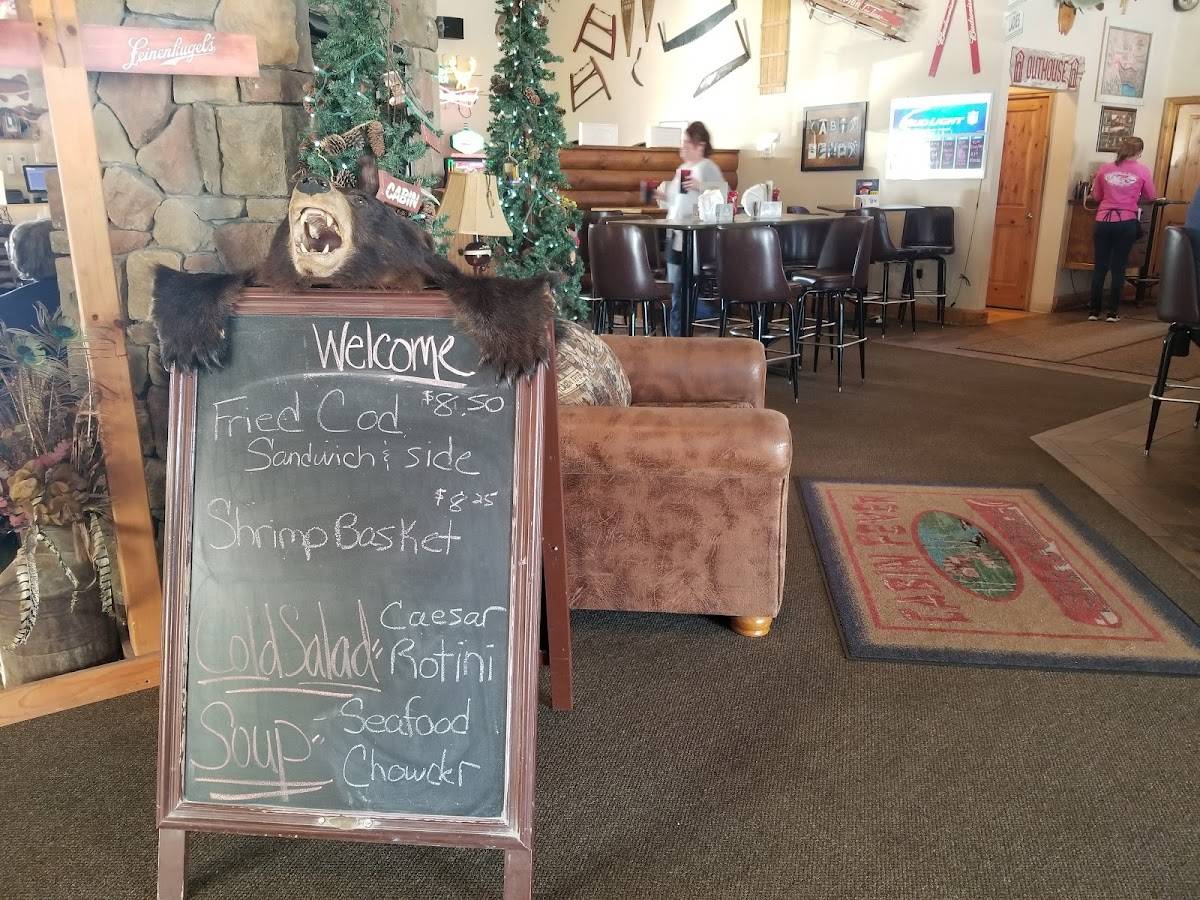 Leinenkugel's
OUTHOUSE
BUD LIGHT
CABIN
Welcome
Fried Cod $8.50
Sandwich & side
$8.25
Shrimp Basket
Cold Salad" Caesar
Rotini
Soup" Seafood
Chowder
KABIN FEVER